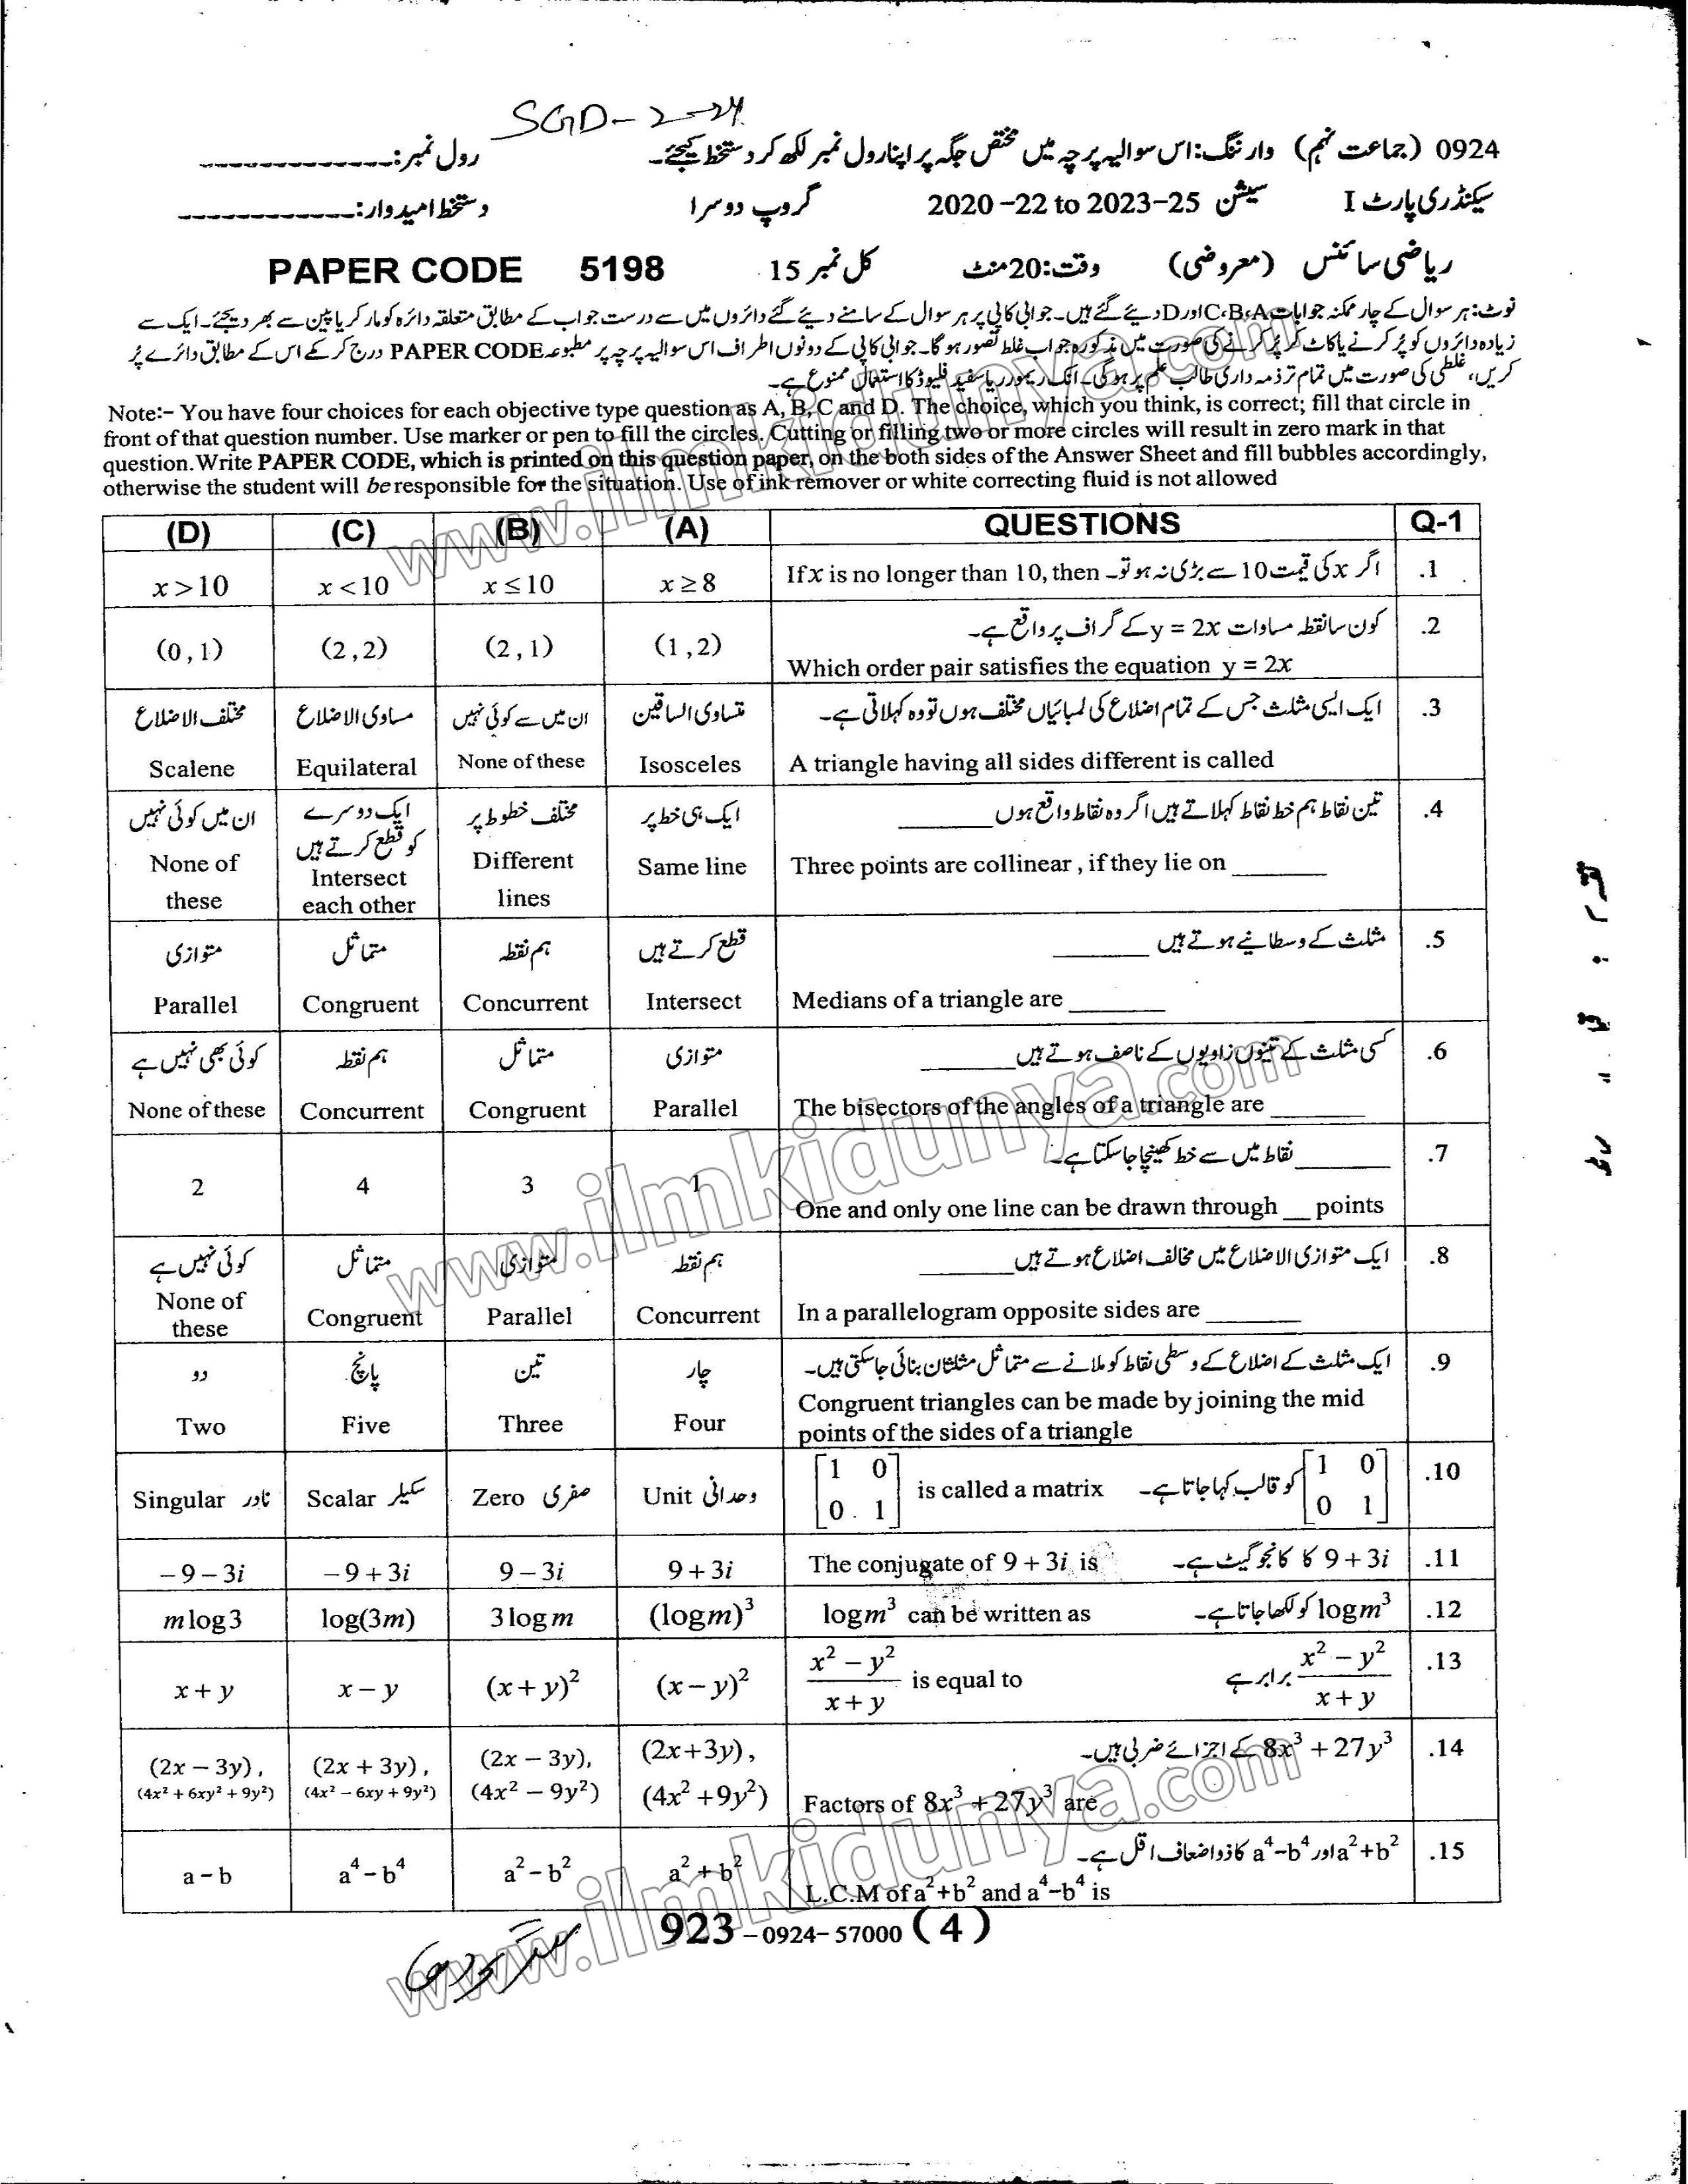 SGD-2-24
0924 (جماعت نہم) وارننگ: اس سوالیہ پرچہ میں مختص جگہ پر اپنا رول نمبر لکھ کر دستخط کیجئے۔ رول نمبر:--------------
سیکنڈری پارٹ I سیشن 2020-22 to 2023-25 گروپ دوسرا دستخط امیدوار:-------------
ریاضی سائنس (معروضی) وقت:20منٹ کل نمبر 15 PAPER CODE 5198
نوٹ: ہر سوال کے چار ممکنہ جوابات C،B،A اور D دیئے گئے ہیں۔ جوابی کاپی پر ہر سوال کے سامنے دیئے گئے دائروں میں سے درست جواب کے مطابق متعلقہ دائرہ کو مارکر یا پین سے بھر دیجئے۔ ایک سے
زیادہ دائروں کو پُر کرنے یا کاٹ کر پُر کرنے کی صورت میں مذکورہ جواب غلط تصور ہو گا۔ جوابی کاپی کے دونوں اطراف اس سوالیہ پرچہ پر مطبوعہ PAPER CODE درج کر کے اس کے مطابق دائرے پُر
کریں، غلطی کی صورت میں تمام تر ذمہ داری طالب علم پر ہوگی۔ انک ریمور ریا سفید فلیوڈ کا استعمال ممنوع ہے۔
Note:- You have four choices for each objective type question as A, B, C and D. The choice, which you think, is correct; fill that circle in
front of that question number. Use marker or pen to fill the circles. Cutting or filling two or more circles will result in zero mark in that
question. Write PAPER CODE, which is printed on this question paper, on the both sides of the Answer Sheet and fill bubbles accordingly,
otherwise the student will be responsible for the situation. Use of ink remover or white correcting fluid is not allowed
(D) (C) (B) (A) QUESTIONS Q-1
x > 10 x < 10 x ≤ 10 x ≥ 8 If x is no longer than 10, then اگر x کی قیمت 10 سے بڑی نہ ہو تو۔ .1
کون سا نقطہ مساوات y = 2x کے گراف پر واقع ہے۔ .2
(0,1) (2,2) (2,1) (1,2)
Which order pair satisfies the equation y = 2x
مختلف الاضلاع مساوی الاضلاع ان میں سے کوئی نہیں متساوی الساقین ایک ایسی مثلث جس کے تمام اضلاع کی لمبائیاں مختلف ہوں تو وہ کہلاتی ہے۔ .3
Scalene Equilateral None of these Isosceles A triangle having all sides different is called
ان میں کوئی نہیں ایک دوسرے کو قطع کرتے ہیں مختلف خطوط پر ایک ہی خط پر تین نقاط ہم خط نقاط کہلاتے ہیں اگر وہ نقاط واقع ہوں ________ .4
None of these Intersect each other Different lines Same line Three points are collinear, if they lie on ________
متوازی متماثل ہم نقطہ قطع کرتے ہیں مثلث کے وسطانیے ہوتے ہیں ________ .5
Parallel Congruent Concurrent Intersect Medians of a triangle are ________
کوئی بھی نہیں ہے ہم نقطہ متماثل متوازی کسی مثلث کے تینوں زاویوں کے ناصف ہوتے ہیں ________ .6
None of these Concurrent Congruent Parallel The bisectors of the angles of a triangle are ________
________ نقاط میں سے خط کھینچا جا سکتا ہے۔ .7
2 4 3 1
One and only one line can be drawn through __ points
کوئی نہیں ہے متماثل متوازی ہم نقطہ ایک متوازی الاضلاع میں مخالف اضلاع ہوتے ہیں ________ .8
None of these Congruent Parallel Concurrent In a parallelogram opposite sides are ________
دو پانچ تین چار ایک مثلث کے اضلاع کے وسطی نقاط کو ملانے سے متماثل مثلثان بنائی جا سکتی ہیں۔ .9
Two Five Three Four Congruent triangles can be made by joining the mid
points of the sides of a triangle
Singular نادر Scalar سکیلر Zero صفری Unit وحدانی [1 0; 0 1] is called a matrix [1 0; 0 1] کو قالب کہا جاتا ہے۔ .10
-9-3i -9+3i 9-3i 9+3i The conjugate of 9+3i is 9+3i کا کانجوگیٹ ہے۔ .11
m log 3 log(3m) 3 log m (log m)³ log m³ can be written as log m³ کو لکھا جاتا ہے۔ .12
x+y x-y (x+y)² (x-y)² (x²-y²)/(x+y) is equal to (x²-y²)/(x+y) برابر ہے .13
8x³+27y³ کے اجزائے ضربی ہیں۔ .14
(2x-3y), (2x+3y), (2x-3y), (2x+3y),
(4x²+6xy²+9y²) (4x²-6xy+9y²) (4x²-9y²) (4x²+9y²) Factors of 8x³+27y³ are
a²+b² اور a⁴-b⁴ کا ذواضعاف اقل ہے۔ .15
a-b a⁴-b⁴ a²-b² a²+b²
L.C.M of a²+b² and a⁴-b⁴ is
923-0924-57000 (4)
www.ilmkidunya.com
www.ilmkidunya.com
www.ilmkidunya.com